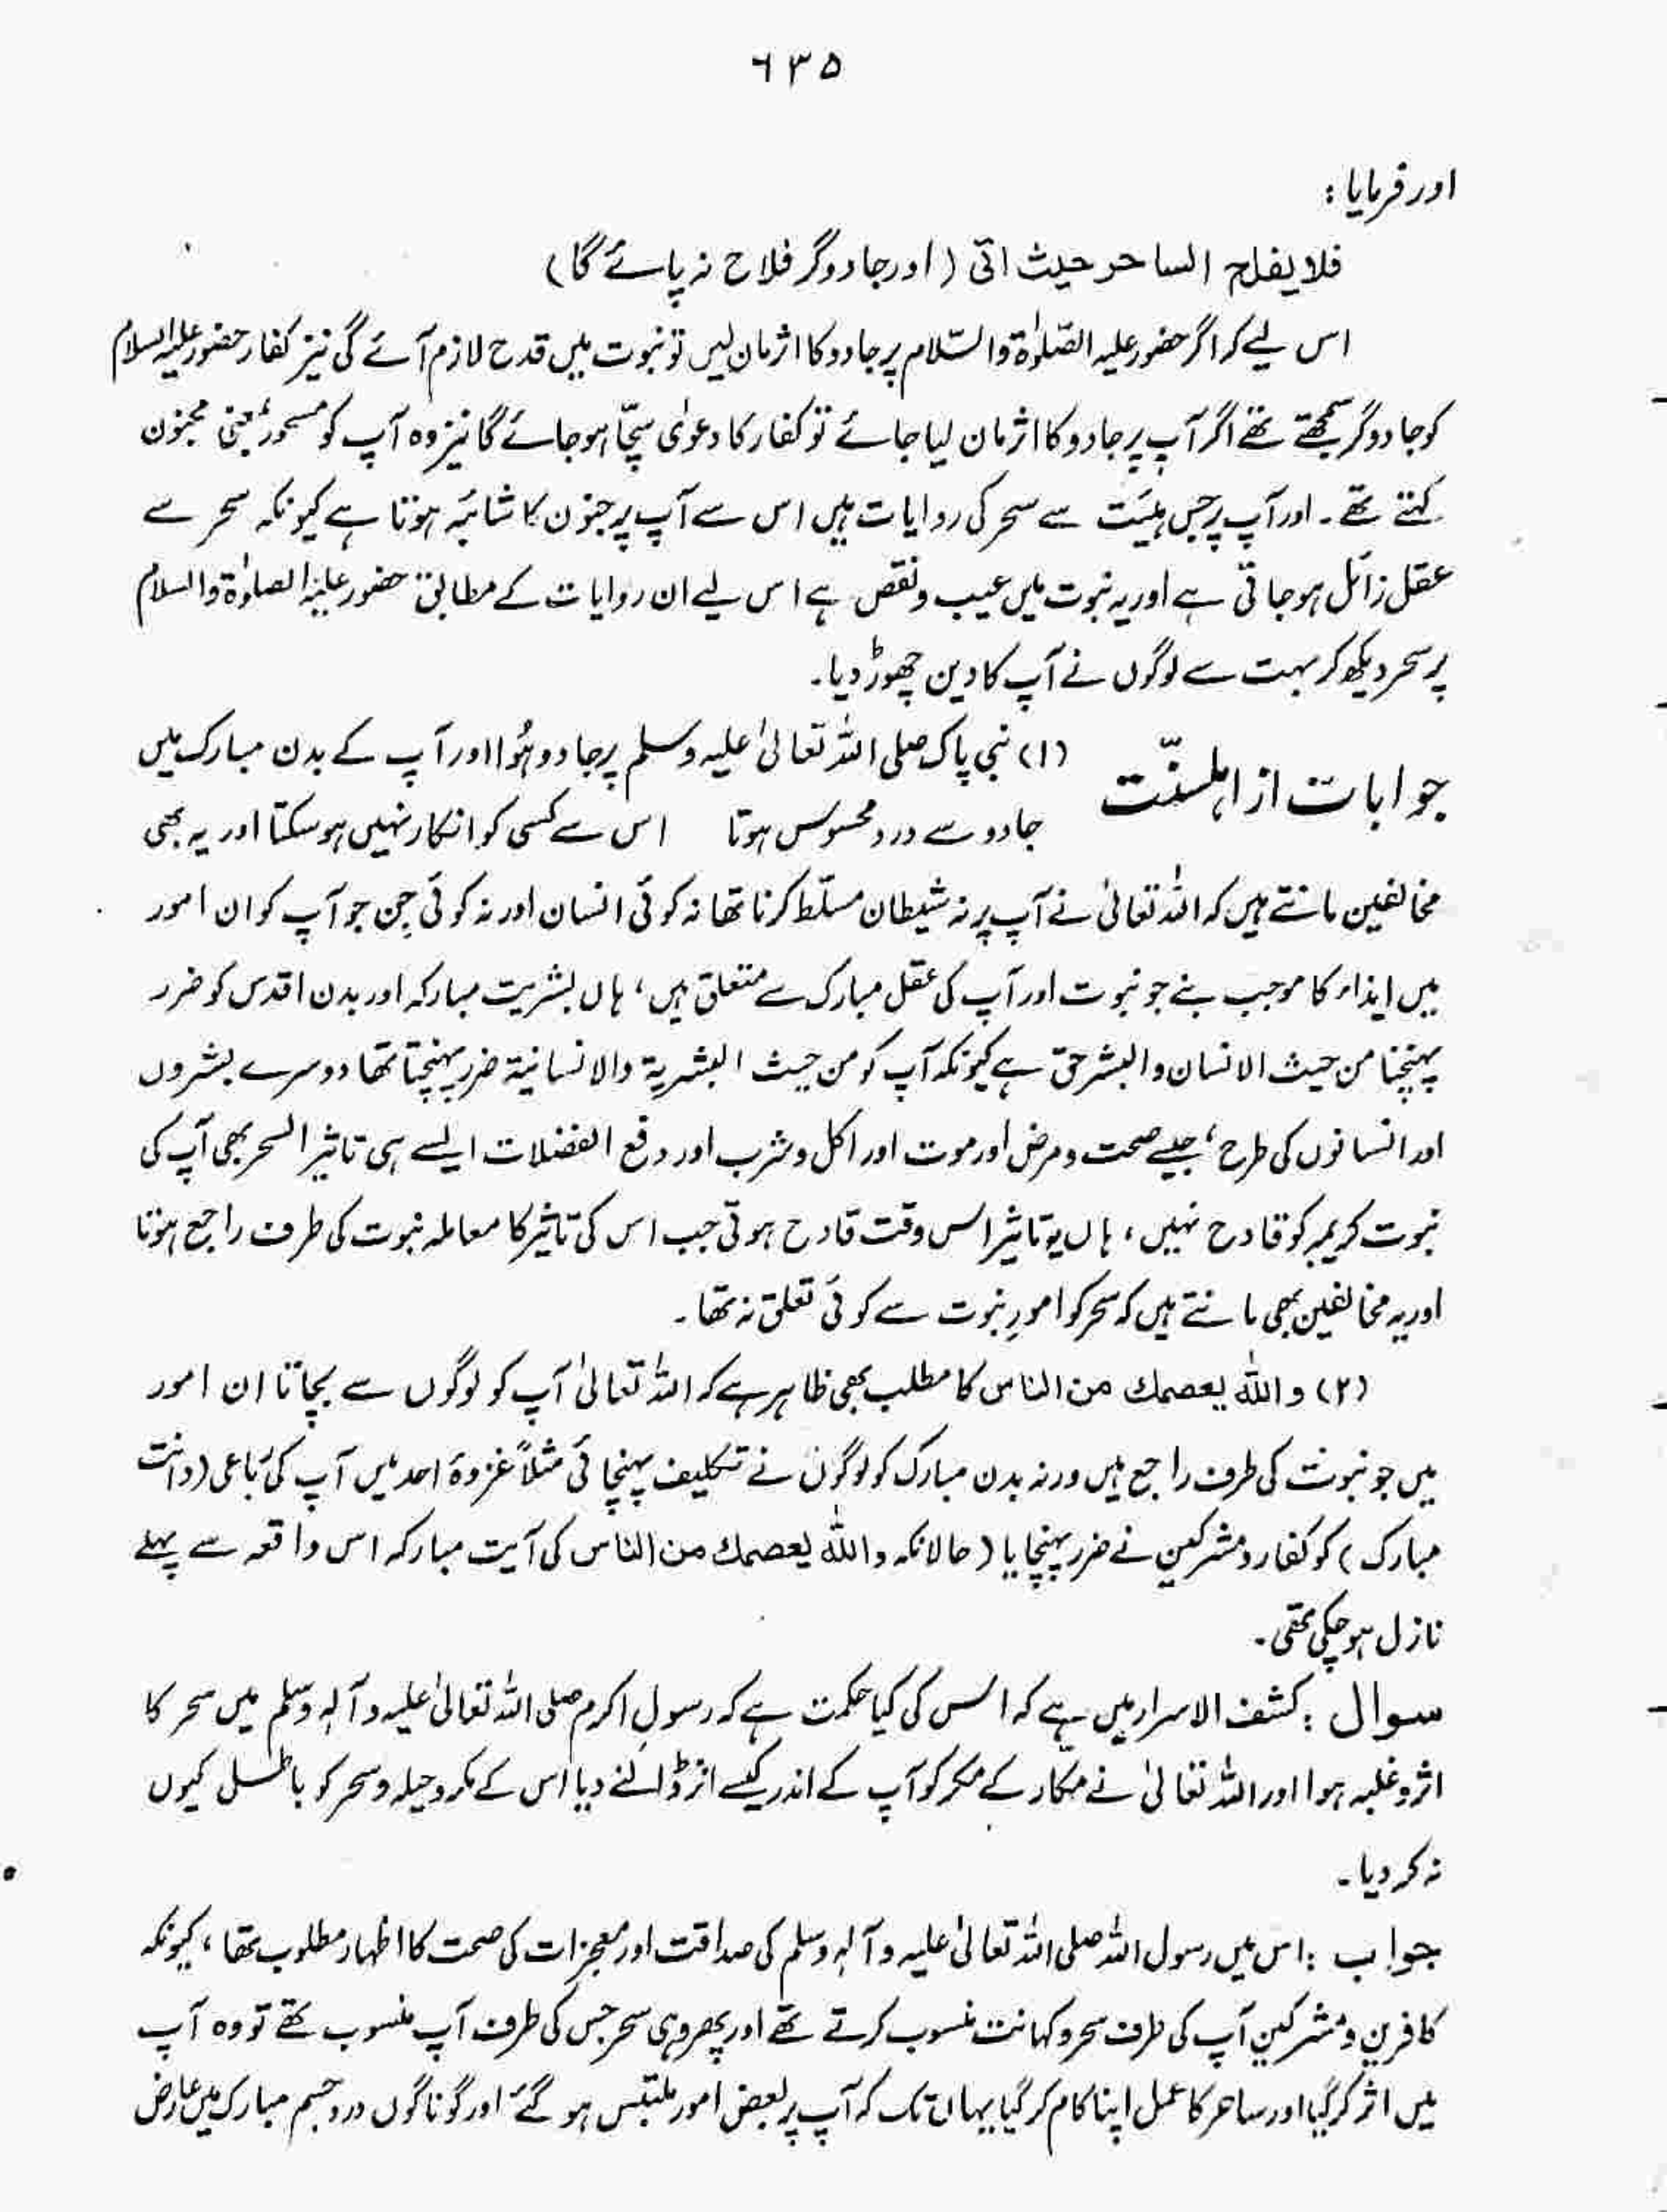 ۶۳۵
اور فرمایا :
فلا یفلح الساحر حیث اتی (اور جادوگر فلاح نہ پائے گا)
اس لیے کہ اگر حضور علیہ الصّلوٰۃ والسّلام پر جادو کا اثر مان لیں تو نبوت میں قدح لازم آئے گی نیز کفار حضور علیہ السلام
کو جادوگر سمجھتے تھے اگر آپ پر جادو کا اثر مان لیا جائے تو کفار کا دعوٰی سچّا ہو جائے گا نیز وہ آپ کو مسحور یعنی مجنون
کہتے تھے۔ اور آپ پر جس ہیئت سے سحر کی روایات ہیں اس سے آپ پر جنون کا شائبہ ہوتا ہے کیونکہ سحر سے
عقل زائل ہو جاتی ہے اور یہ نبوت میں عیب و نقص ہے اس لیے ان روایات کے مطابق حضور علیہ الصلوٰۃ والسلام
پر سحر دیکھ کر بہت سے لوگوں نے آپ کا دین چھوڑ دیا۔
جوابات از اہلسنّت (۱) نبی پاک صلی اللہ تعالیٰ علیہ وسلم پر جادو ہُوا اور آپ کے بدن مبارک میں
جادو سے درد محسوس ہوتا اس سے کسی کو انکار نہیں ہو سکتا اور یہ بھی
مخالفین مانتے ہیں کہ اللہ تعالیٰ نے آپ پر نہ شیطان مسلّط کرنا تھا نہ کوئی انسان اور نہ کوئی جِن جو آپ کو ان امور
میں ایذاء کا موجب بنے جو نبوت اور آپ کی عقل مبارک سے متعلق ہیں، ہاں بشریت مبارکہ اور بدن اقدس کو ضرر
پہنچنا من حیث الانسان والبشر حق ہے کیونکہ آپ کو من حیث البشریۃ والانسانیۃ ضرر پہنچتا تھا دوسرے بشروں
اور انسانوں کی طرح، جیسے صحت و مرض اور موت اور اکل و شرب اور دفع الفضلات ایسے ہی تاثیر السحر بھی آپ کی
نبوت کریمہ کو قادح نہیں، ہاں یہ تاثیر اس وقت قادح ہوتی جب اس کی تاثیر کا معاملہ نبوت کی طرف راجع ہوتا
اور یہ مخالفین بھی مانتے ہیں کہ سحر کو امورِ نبوت سے کوئی تعلق نہ تھا۔
(۲) واللہ یعصمک من الناس کا مطلب بھی ظاہر ہے کہ اللہ تعالیٰ آپ کو لوگوں سے بچاتا ان امور
میں جو نبوت کی طرف راجع ہیں ورنہ بدن مبارک کو لوگوں نے تکلیف پہنچائی مثلاً غزوۂ احد میں آپ کی رباعی (دانت
مبارک) کو کفار و مشرکین نے ضرر پہنچایا (حالانکہ واللہ یعصمک من الناس کی آیت مبارکہ اس واقعہ سے پہلے
نازل ہو چکی تھی۔
سوال : کشف الاسرار میں ہے کہ اس کی کیا حکمت ہے کہ رسول اکرم صلی اللہ تعالیٰ علیہ وآلہ وسلم میں سحر کا
اثر و غلبہ ہوا اور اللہ تعالیٰ نے مکّار کے مکر کو آپ کے اندر کیسے اثر ڈالنے دیا اس کے مکر و حیلہ و سحر کو باطل کیوں
نہ کر دیا۔
جواب : اس میں رسول اللہ صلی اللہ تعالیٰ علیہ وآلہ وسلم کی صداقت اور معجزات کی صحت کا اظہار مطلوب تھا، کیونکہ
کافرین و مشرکین آپ کی طرف سحر و کہانت منسوب کرتے تھے اور پھر وہی سحر جس کی طرف آپ منسوب تھے تو وہ آپ
میں اثر کر گیا اور ساحر کا عمل اپنا کام کر گیا یہاں تک کہ آپ پر بعض امور ملتبس ہو گئے اور گوناگوں درد جسم مبارک میں عارض